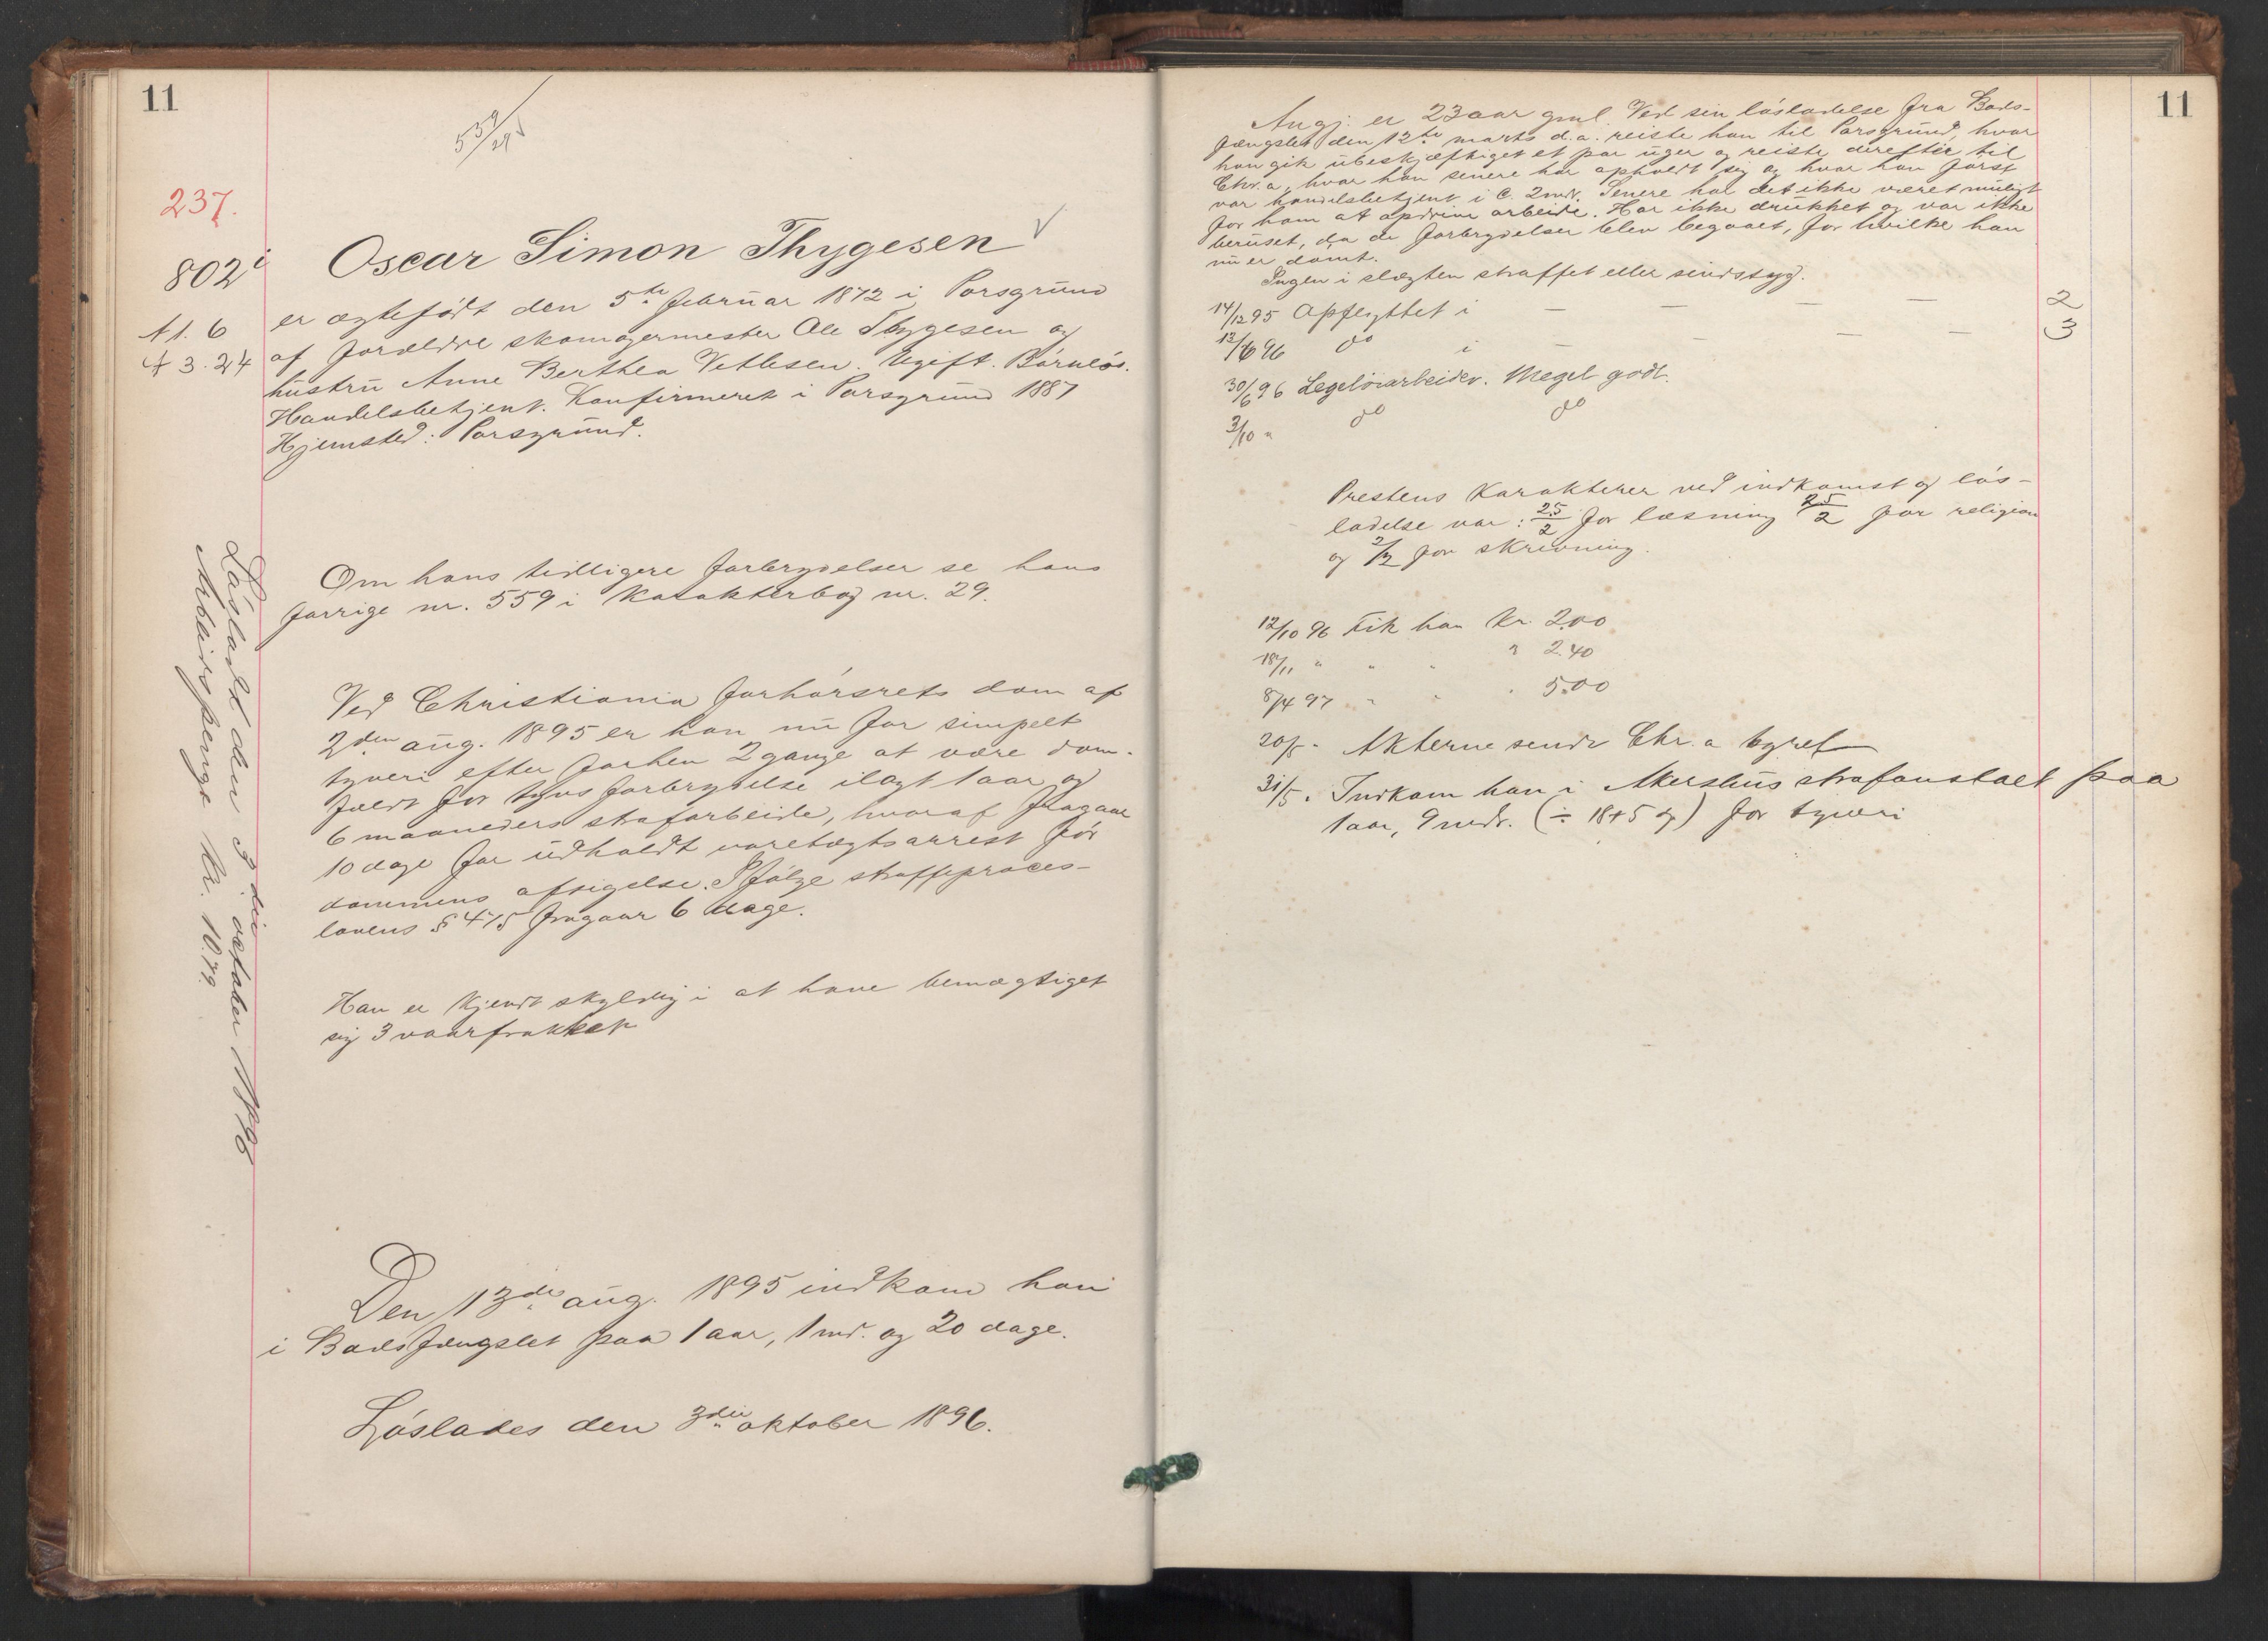 11
559/29
237.
802
A 1. 6
A 3. 24
Oscar Simon Thygesen
er ægtefødt den 5te februar 1872 i Porsgrund
af forældre skomagermester Ole Thygesen og
hustru Anne Berthea Vetlesen. Ugift. Barnløs.
Handelsbetjent. Konfirmeret i Porsgrund 1887
Hjemsted: Porsgrund.
Om hans tidligere forbrydelser se hans
forrige nr. 559 i Karakterbog nr. 29.
Ved Christiania forhørsrets dom af
2den aug. 1895 er han nu for simpelt
tyveri efter forhen 2 gange at være dom-
fældt for tyvs forbrydelse ilagt 1 aar og
6 maaneders strafarbeide, hvoraf fragaar
10 dage for udholdt varetægtsarrest før
dommens afsigelse. Ifølge straffeproces-
lovens § 475 fragaar 6 dage.
Han er kjendt skyldig i at have bemægtiget
sig 3 vaarfrakker
Den 13de aug. 1895 indkom han
i Bodsfængslet paa 1 aar, 1 md. og 20 dage.
Løslades den 3die oktober 1896.
Løsladt den 3die oktober 1896
Arbeidspenge kr. 10.79.
11
Angj. er 23 aar gml. Ved sin løsladelse fra Bods-
fængslet den 12te marts d.a. reiste han til Porsgrund, hvor
han gik ubeskjæftiget et par uger og reiste derefter til
Chr.a, hvor han senere har opholdt sig og hvor han først
var handelsbetjent i C. 2 mdr. Senere har det ikke været muligt
for ham at opdrive arbeide. Har ikke drukket og var ikke
beruset, da de forbrydelser blev begaaet, for hvilke han
nu er dømt.
Ingen i slægten straffet eller sindssyg.
14/12 95 Opflyttet i — — — — 2
12/4 96 do i — — — — 3
30/6 96 Legetøiarbeider. Meget godt.
3/10 " do do
Prestens Karakterer ved indkomst og løs-
ladelse var: 25/2 for læsning 25/2 for religion
og 2/2 for skrivning.
12/10 96 Fik han Kr. 2.00
18/11 " " " " 2.40
8/4 97 " " " 5.00
20/5 " Akterne sendt Chr.a byret
31/5 " Indkom han i Akershus strafanstalt paa
1 aar, 9 mdr. (÷ 18+5 dg) for tyveri